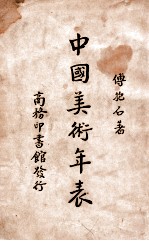 傅抱石著
中國美術年表
商務印書館發行